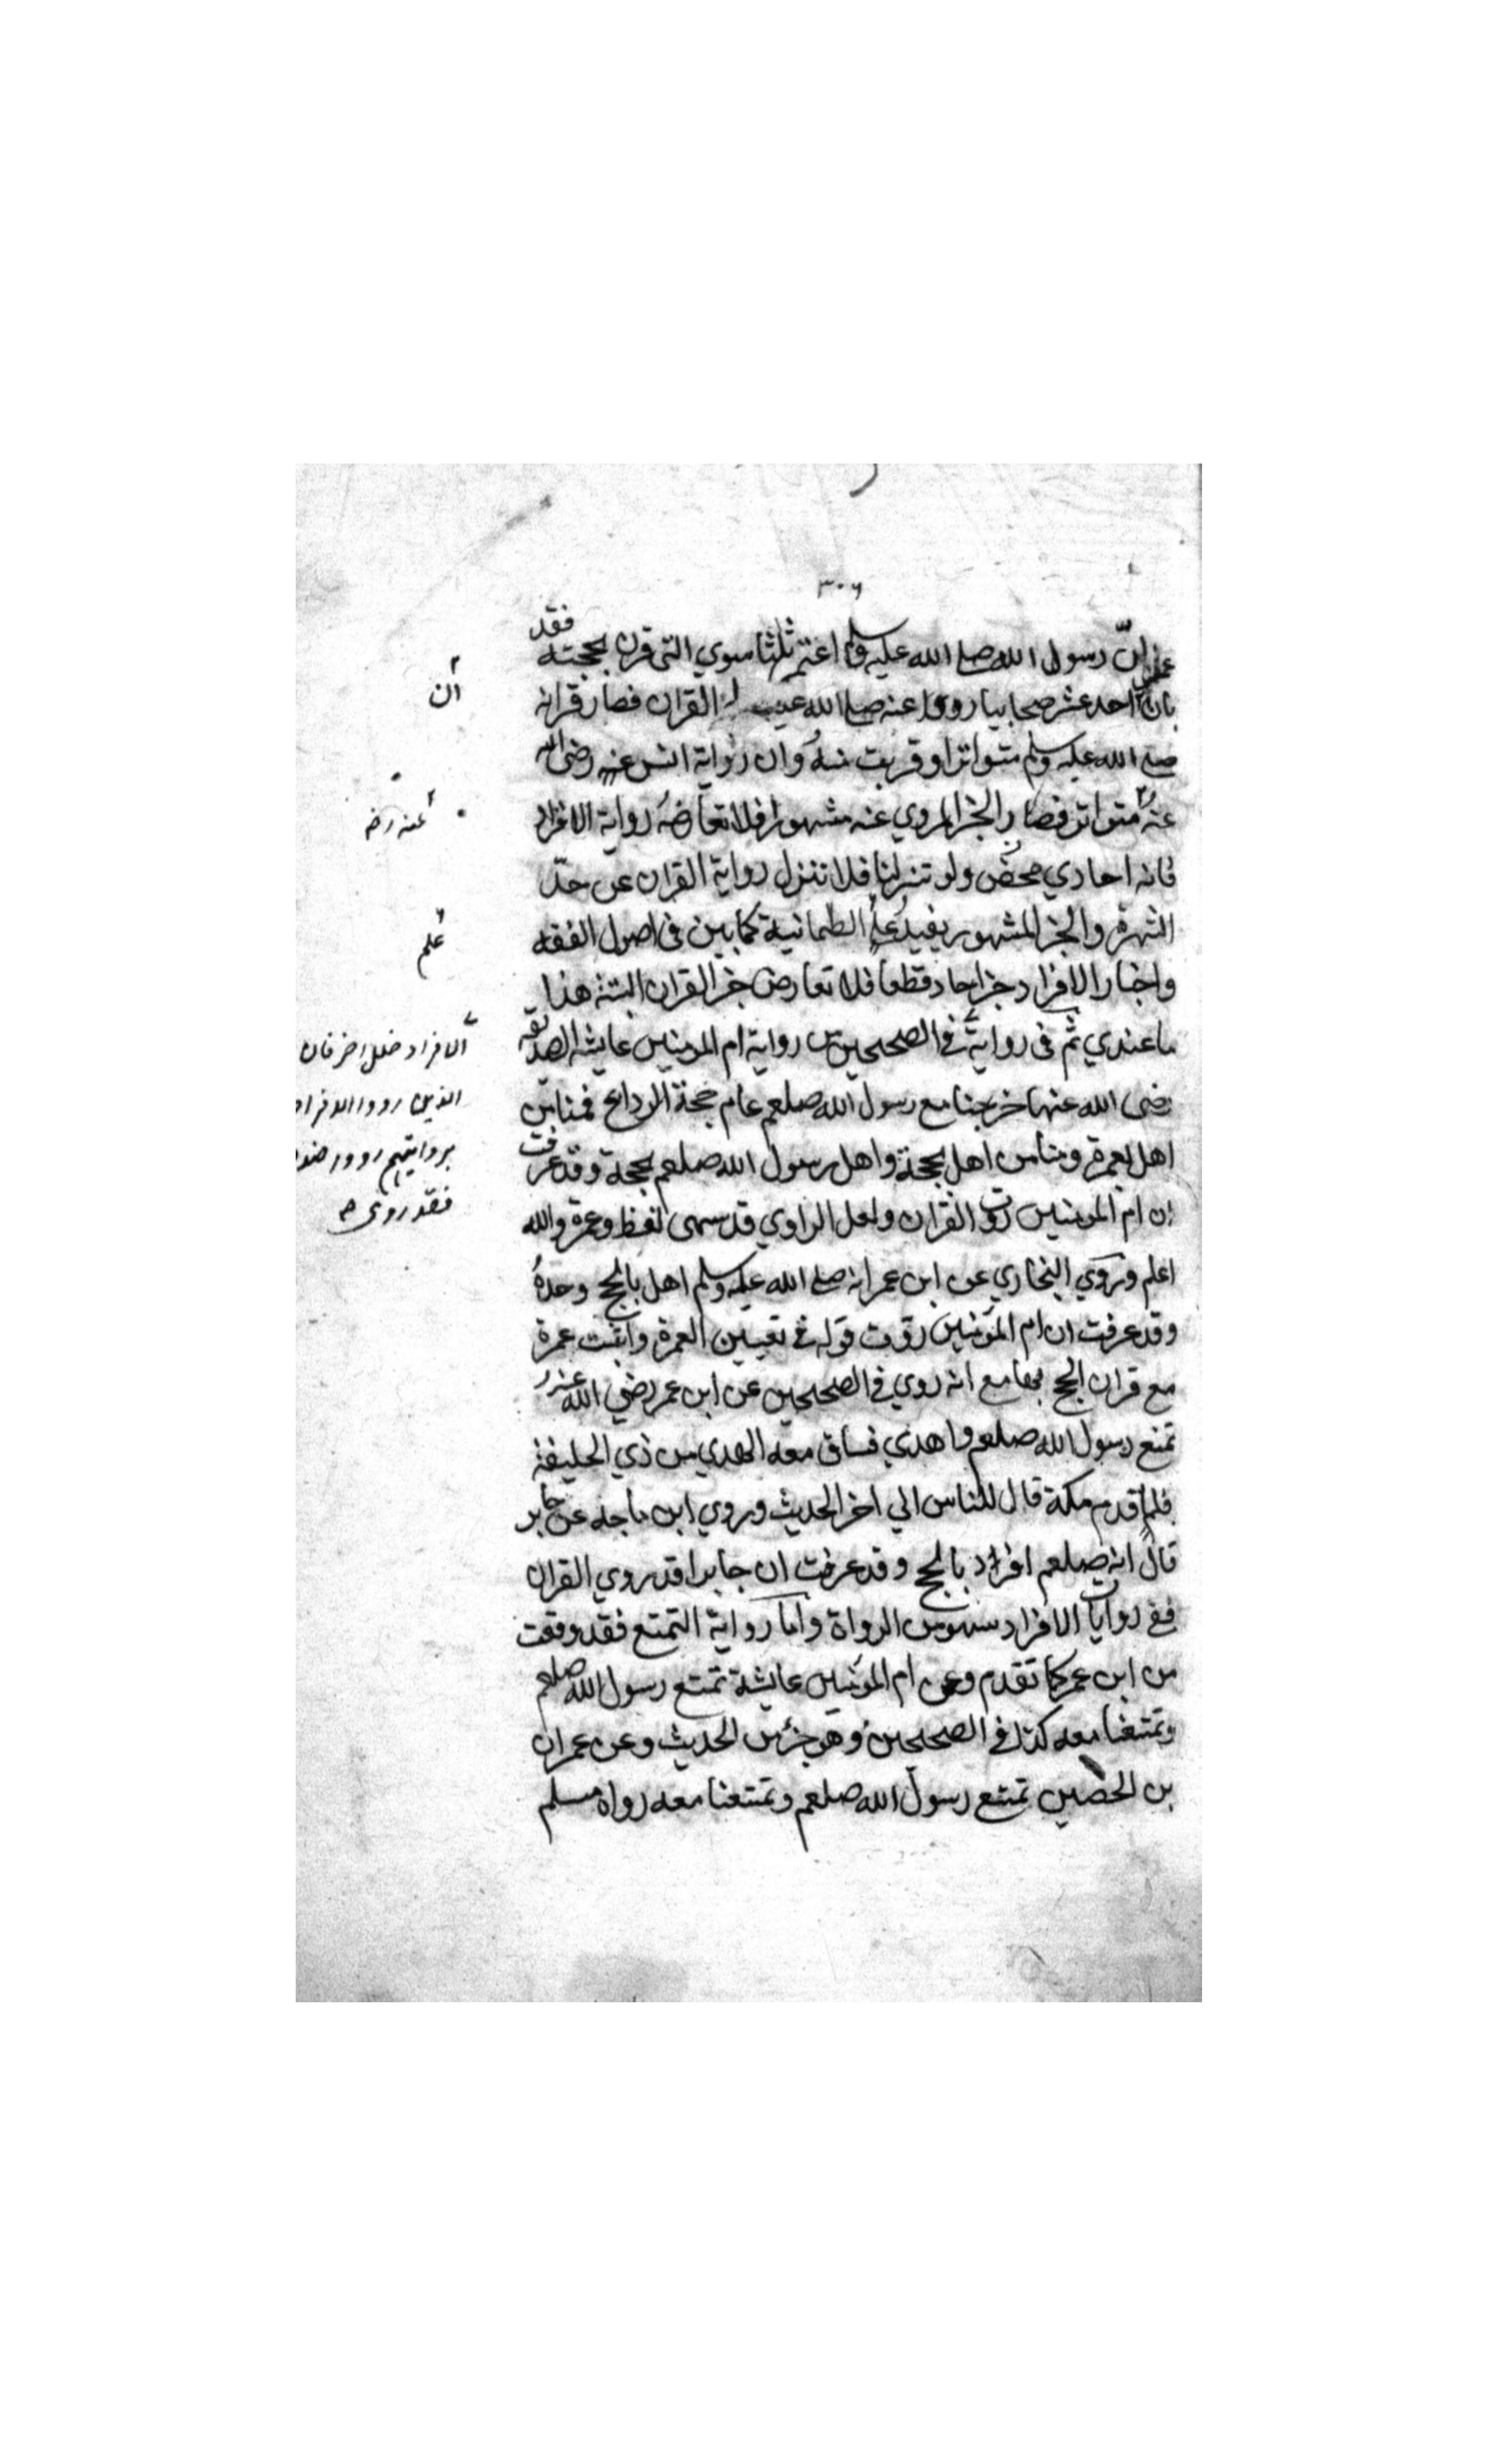 ٣٠٦
ان رسول الله صلى الله عليه وسلم اعتمر ثلثا سوي التي قرن بحجته فقد
بان احد عشر صحابيا رووا عنه صلى الله القران فصار قرانه
صلى الله عليه وسلم متواترا وان رواية انس عنه رضى الله
عنه متواتر فصار الخبر المروي عنه مشهورا فلا تعارضه رواية الافراد
فانه احادي محض ولو تنزلنا فلا تنزل رواية القران عن حدّ
الشهرة والخبر المشهور يفيد علم الطمانية كما بين فى اصول الفقه
واخبار الافراد خبر احاد قطعا فلا تعارض خبر القران البتة هذا
ما عندي ثم فى رواية فى الصحيحين من رواية ام المومنين عايشه الصديقه
رضى الله عنها خرجنا مع رسول الله صلعم عام حجة الوداع فمنا من
اهل بعمرة ومنا من اهل بحجة واهل رسول الله صلعم بحجة وقد عرفت
ان ام المومنين روت القران ولعل الراوي قد سهى لفظ وعمرة والله
اعلم وروي البخاري عن ابن عمر انه صلى الله عليه وسلم اهل بالحج وحده
وقد عرفت ان ام المومنين قوله في تعيين العمرة واثبت عمرة
مع قران الحج بها مع انه روي في الصحيحين عن ابن عمر رضي الله عنه
تمتع رسول الله صلعم واهدي فساق معه الهدي من ذي الحليفة
فلما قدم مكة قال للناس الي اخر الحديث وروي ابن ماجه عن جابر
قال انه صلعم افراد بالحج وقد عرفت ان جابرا قد روي القران
ففي روايات الافراد سهو من الرواة واما رواية التمتع فقد وقعت
من ابن عمر كما تقدم وعن ام المومنين عايشة تمتع رسول الله صلعم
وتمتعنا معه كذا في الصحيحين وهو جزء من الحديث وعن عمران
بن الحصين تمتع رسول الله صلعم وتمتعنا معه رواه مسلم
ان
عنه رضه
علم
الافراد خلل اخر فان
الذين رووا الافراد
بروايتهم رووا
فقد روى